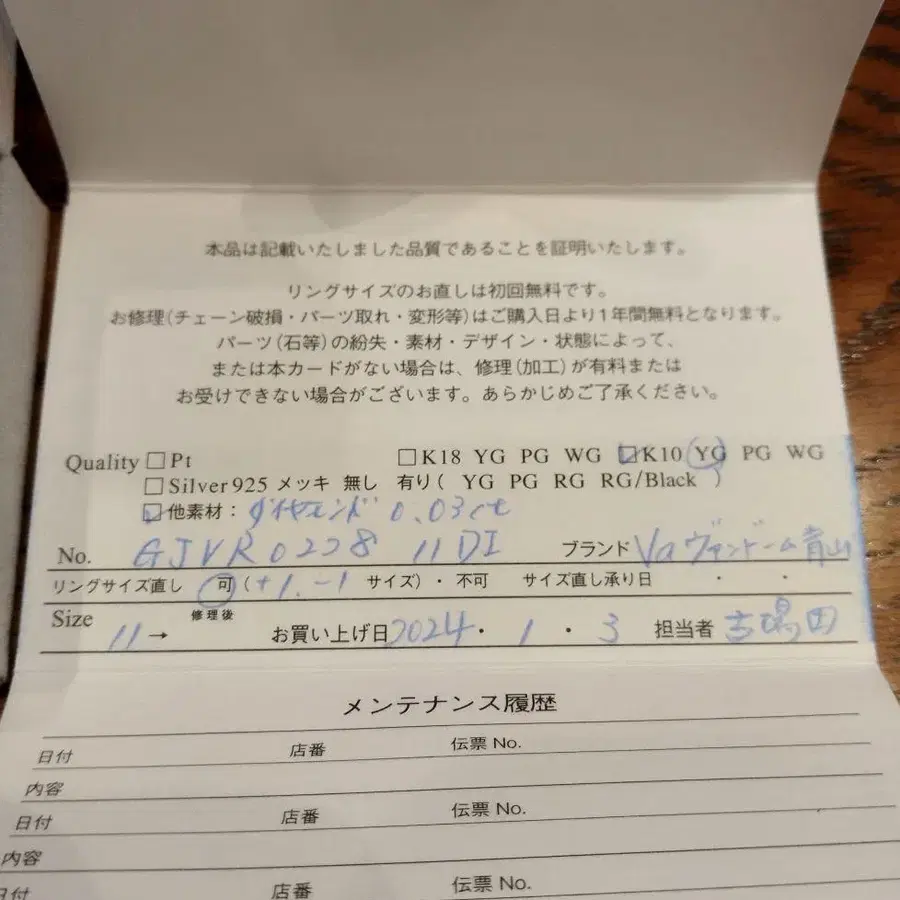 本品は記載いたしました品質であることを証明いたします。
リングサイズのお直しは初回無料です。
お修理(チェーン破損・パーツ取れ・変形等)はご購入日より1年間無料となります。
パーツ(石等)の紛失・素材・デザイン・状態によって、
または本カードがない場合は、修理(加工)が有料または
お受けできない場合がございます。あらかじめご了承ください。
Quality □Pt □K18 YG PG WG ☑K10 YG PG WG
□Silver925 メッキ 無し 有り( YG PG RG RG/Black )
☑他素材:ダイヤモンド 0.03ct
No. GJVR0228 11DI ブランド Vaヴァンドーム青山
リングサイズ直し 可(+1.-1 サイズ)・不可 サイズ直し承り日 ・ ・
Size 11→ 修理後 お買い上げ日2024・1・3 担当者
メンテナンス履歴
日付 店番 伝票 No.
内容
日付 店番 伝票 No.
内容
日付 店番 伝票 No.